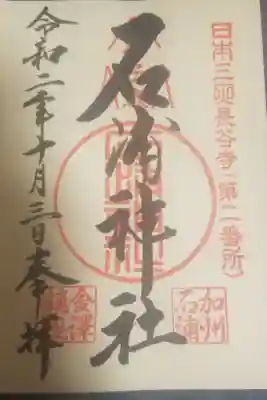 日本三迎長谷寺第二番所
石浦神社
加州
石浦
金澤
令和二年十月三日奉拝